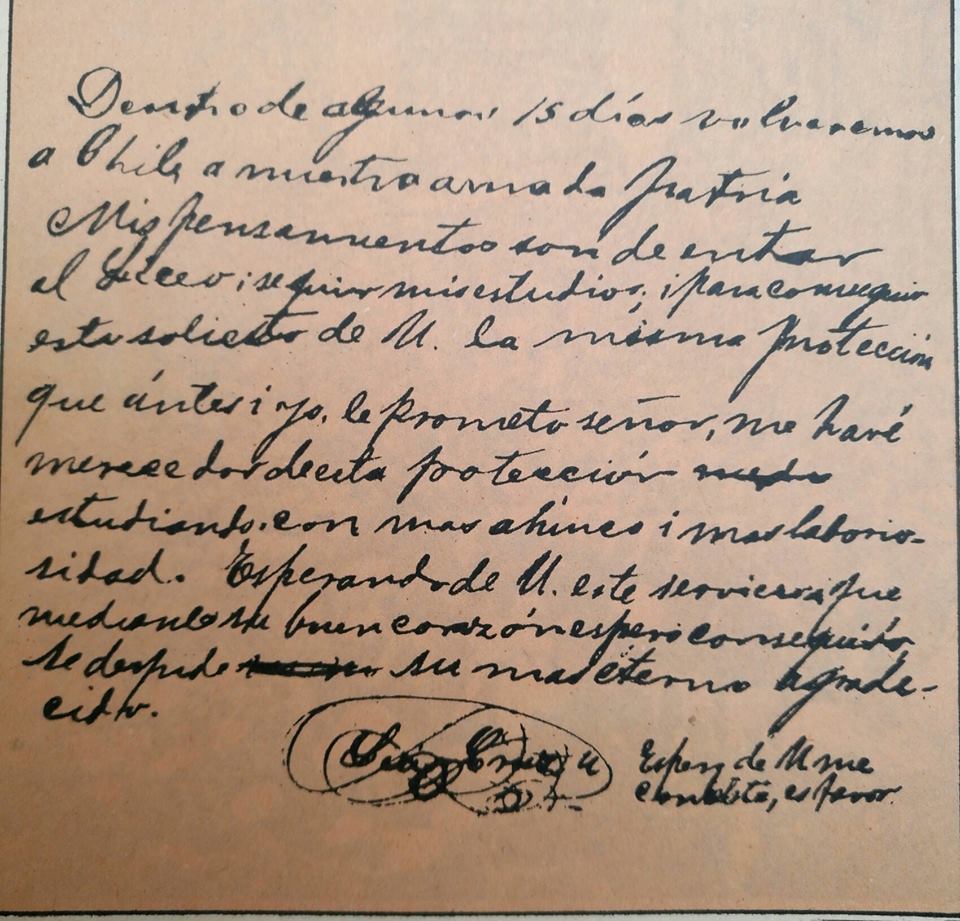 Dentro de algunos 15 días volveremos
a Chile a nuestra amada patria
Mis pensamientos son de entrar
al Liceo i seguir mis estudios, i para conseguir
esto solicito de U. la misma protección
que ántes i yo, le prometo señor, me haré
merecedor de esta protección
estudiando con mas ahinco i mas laborio-
sidad. Esperando de U. este servicio que
mediante su buen corazón espero conseguirlo,
se despide su mas eterno agrade-
cido.
Cruz
Espero de U me
conteste, es favor.